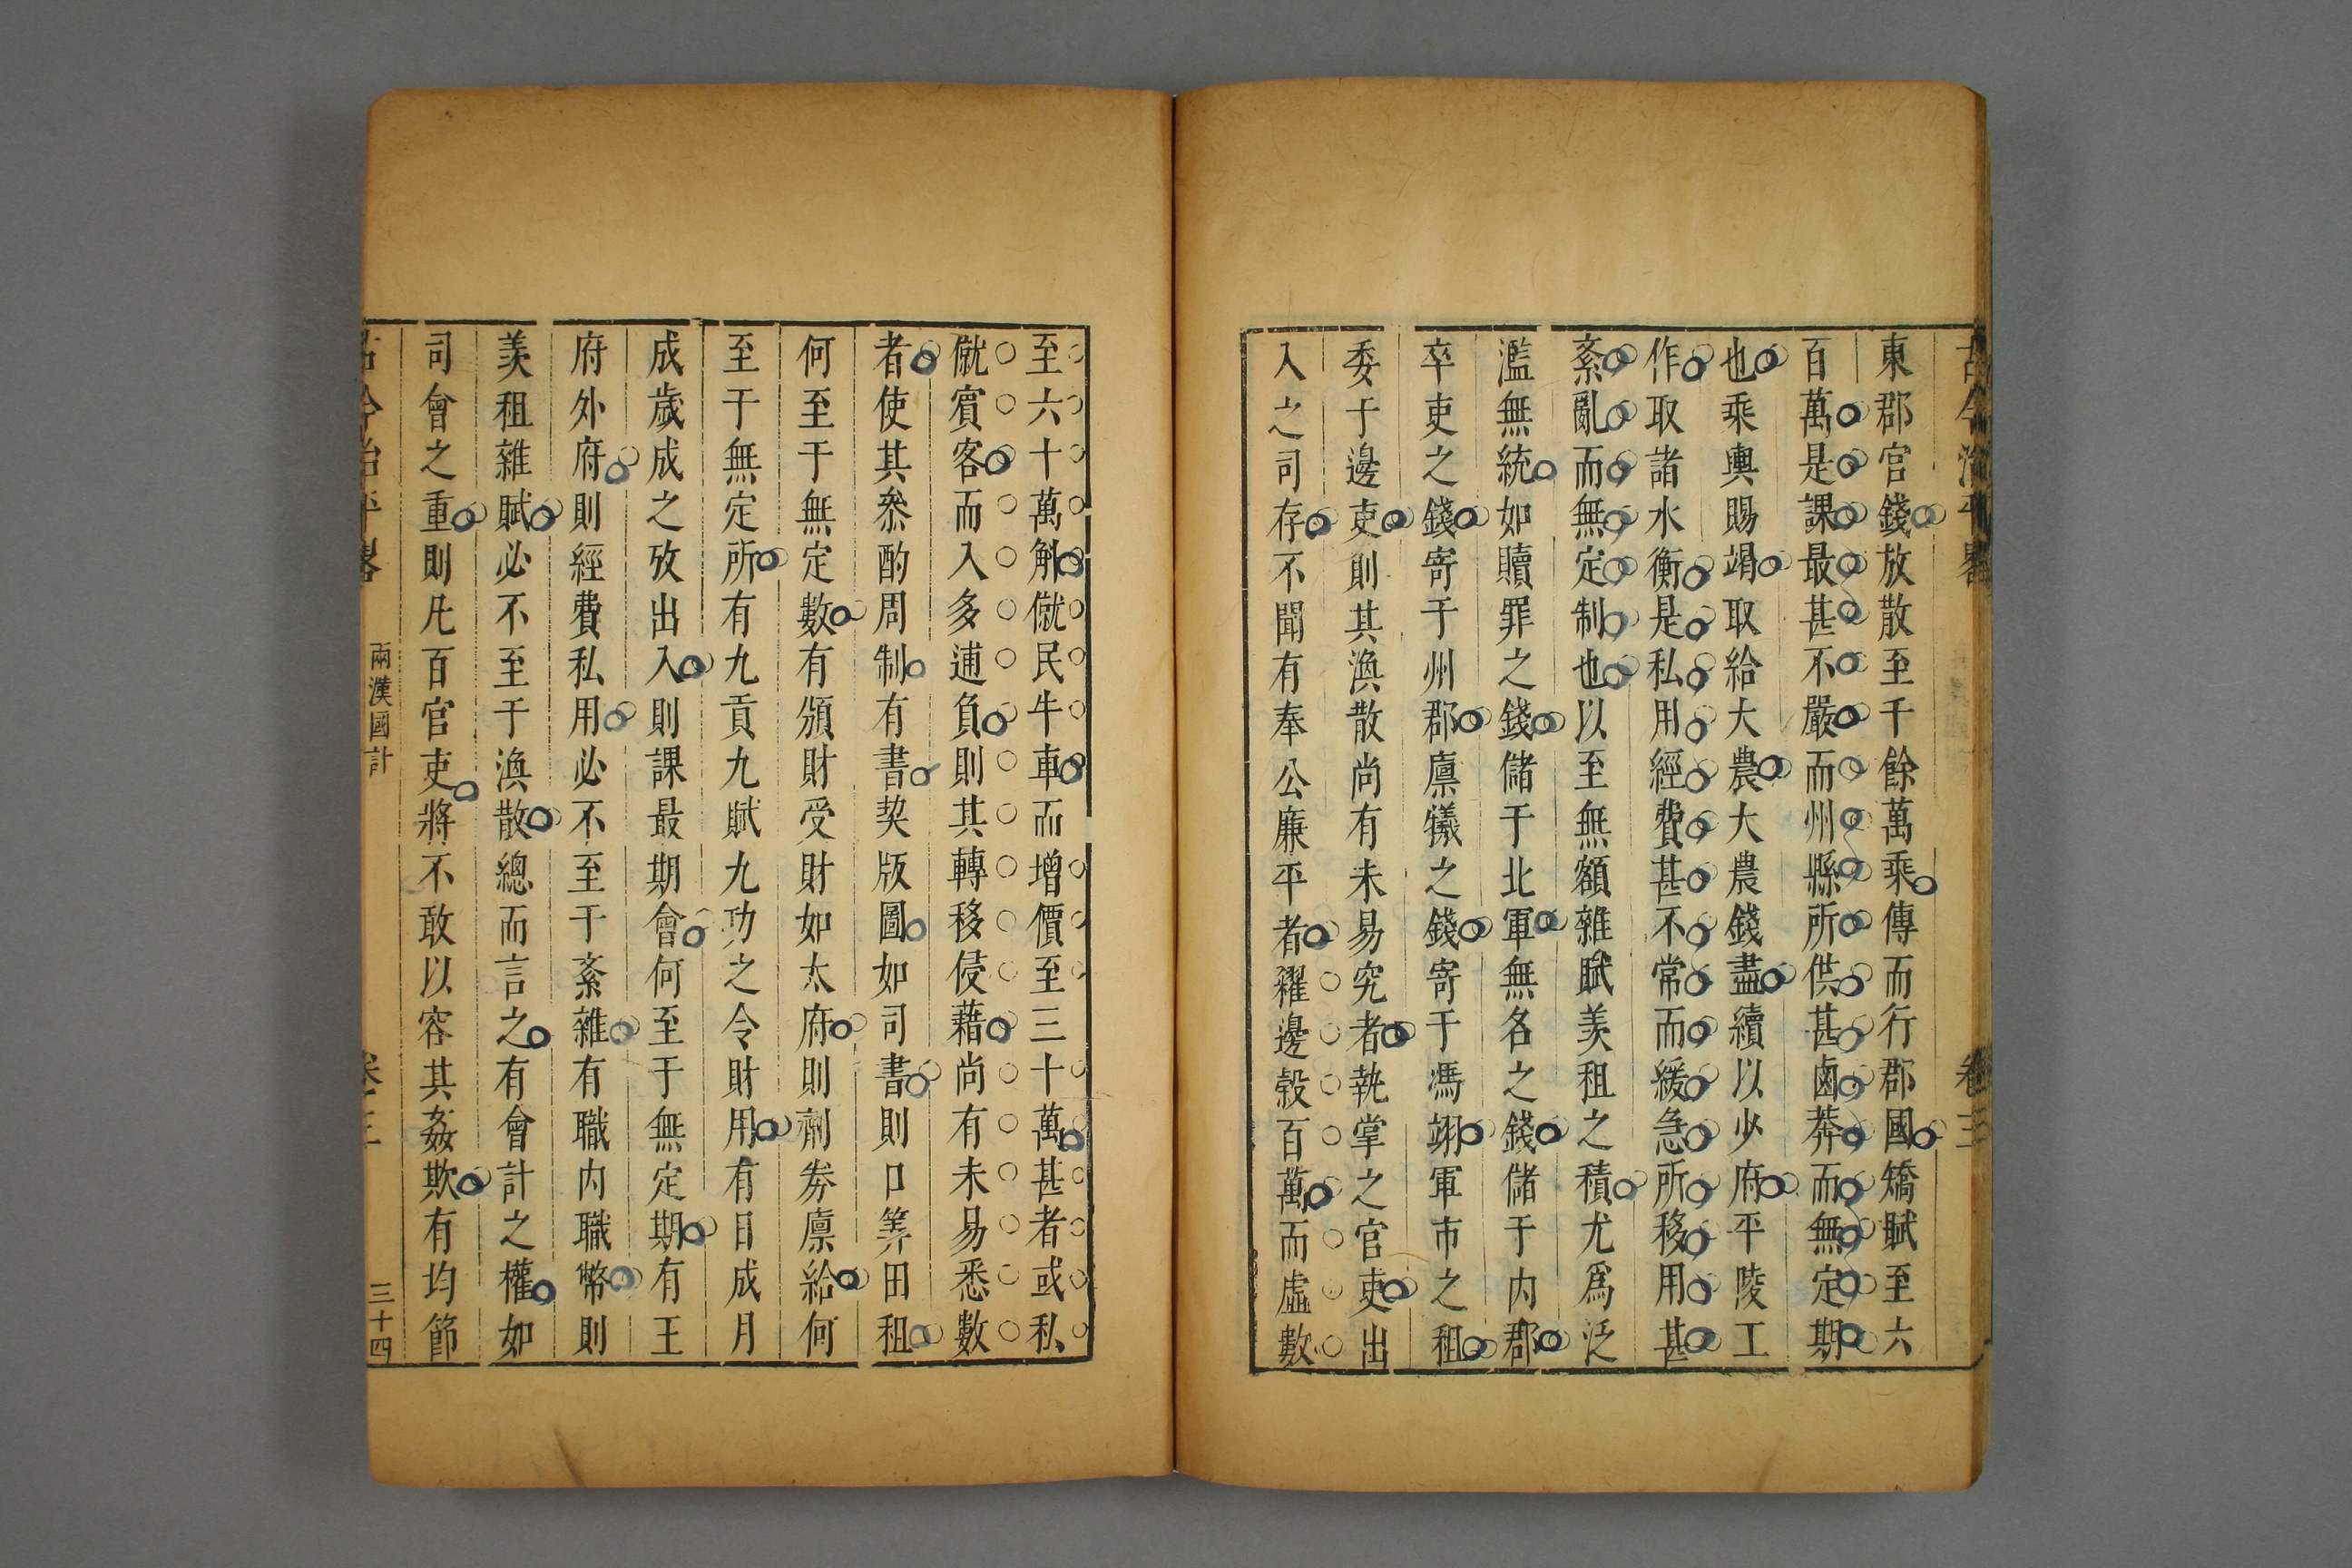 古今治平畧
卷三
東郡官錢放散至千餘萬乘傳而行郡國矯賦至六
百萬是課最甚不嚴而州縣所供甚鹵莽而無定期
也乘輿賜竭取給大農大農錢盡續以少府平陵工
作取諸水衡是私用經費甚不常而緩急所移用甚
紊亂而無定制也以至無額雜賦羡租之積尤爲泛
濫無統如贖罪之錢儲于北軍無名之錢儲于内郡
卒吏之錢寄于州郡廩犧之錢寄于馮翊軍市之租
委于邊吏則其渙散尚有未易究者執掌之官吏出
入之司存不聞有奉公廉平者糴邊穀百萬而虛數
至六十萬斛僦民牛車而增價至三十萬甚者或私
僦賓客而入多逋負則其轉移侵藉尚有未易悉數
者使其叅酌周制有書契版圖如司書則口筭田租
何至于無定數有頒財受財如太府則劑券廩給何
至于無定所有九貢九賦九功之令財用有日成月
成歲成之攷出入則課最期會何至于無定期有王
府外府則經費私用必不至于紊雜有職内職幣則
羡租雜賦必不至于渙散總而言之有會計之權如
司會之重則凡百官吏將不敢以容其姦欺有均節
古今治平畧
兩漢國計
卷三
三十四